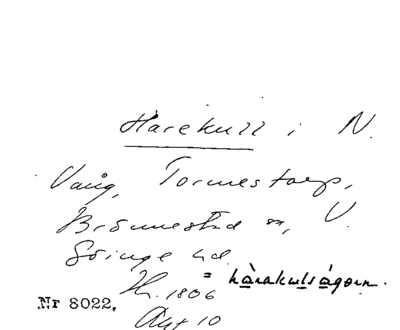 Harekull i N.
Vång, Tormestorp,
Brönnestad sn, V.
Göinge hd
= hàrakulságorn.
H. 1806
Nr 8022. Akt 10